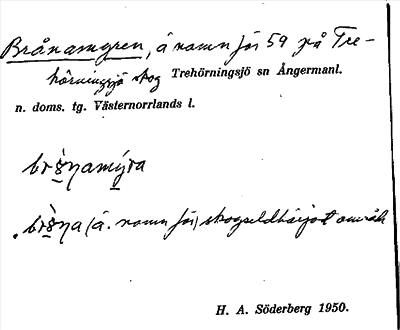 Brånamyren, ä namn för 59 på Tre-
hörningsjö skog Trehörningsjö sn Ångermanl.
n. doms. tg. Västernorrlands l.
brṣ̀ŋamýra
brṣ̀ŋa (ä. namn för) skogseldhärjat område
H. A. Söderberg 1950.